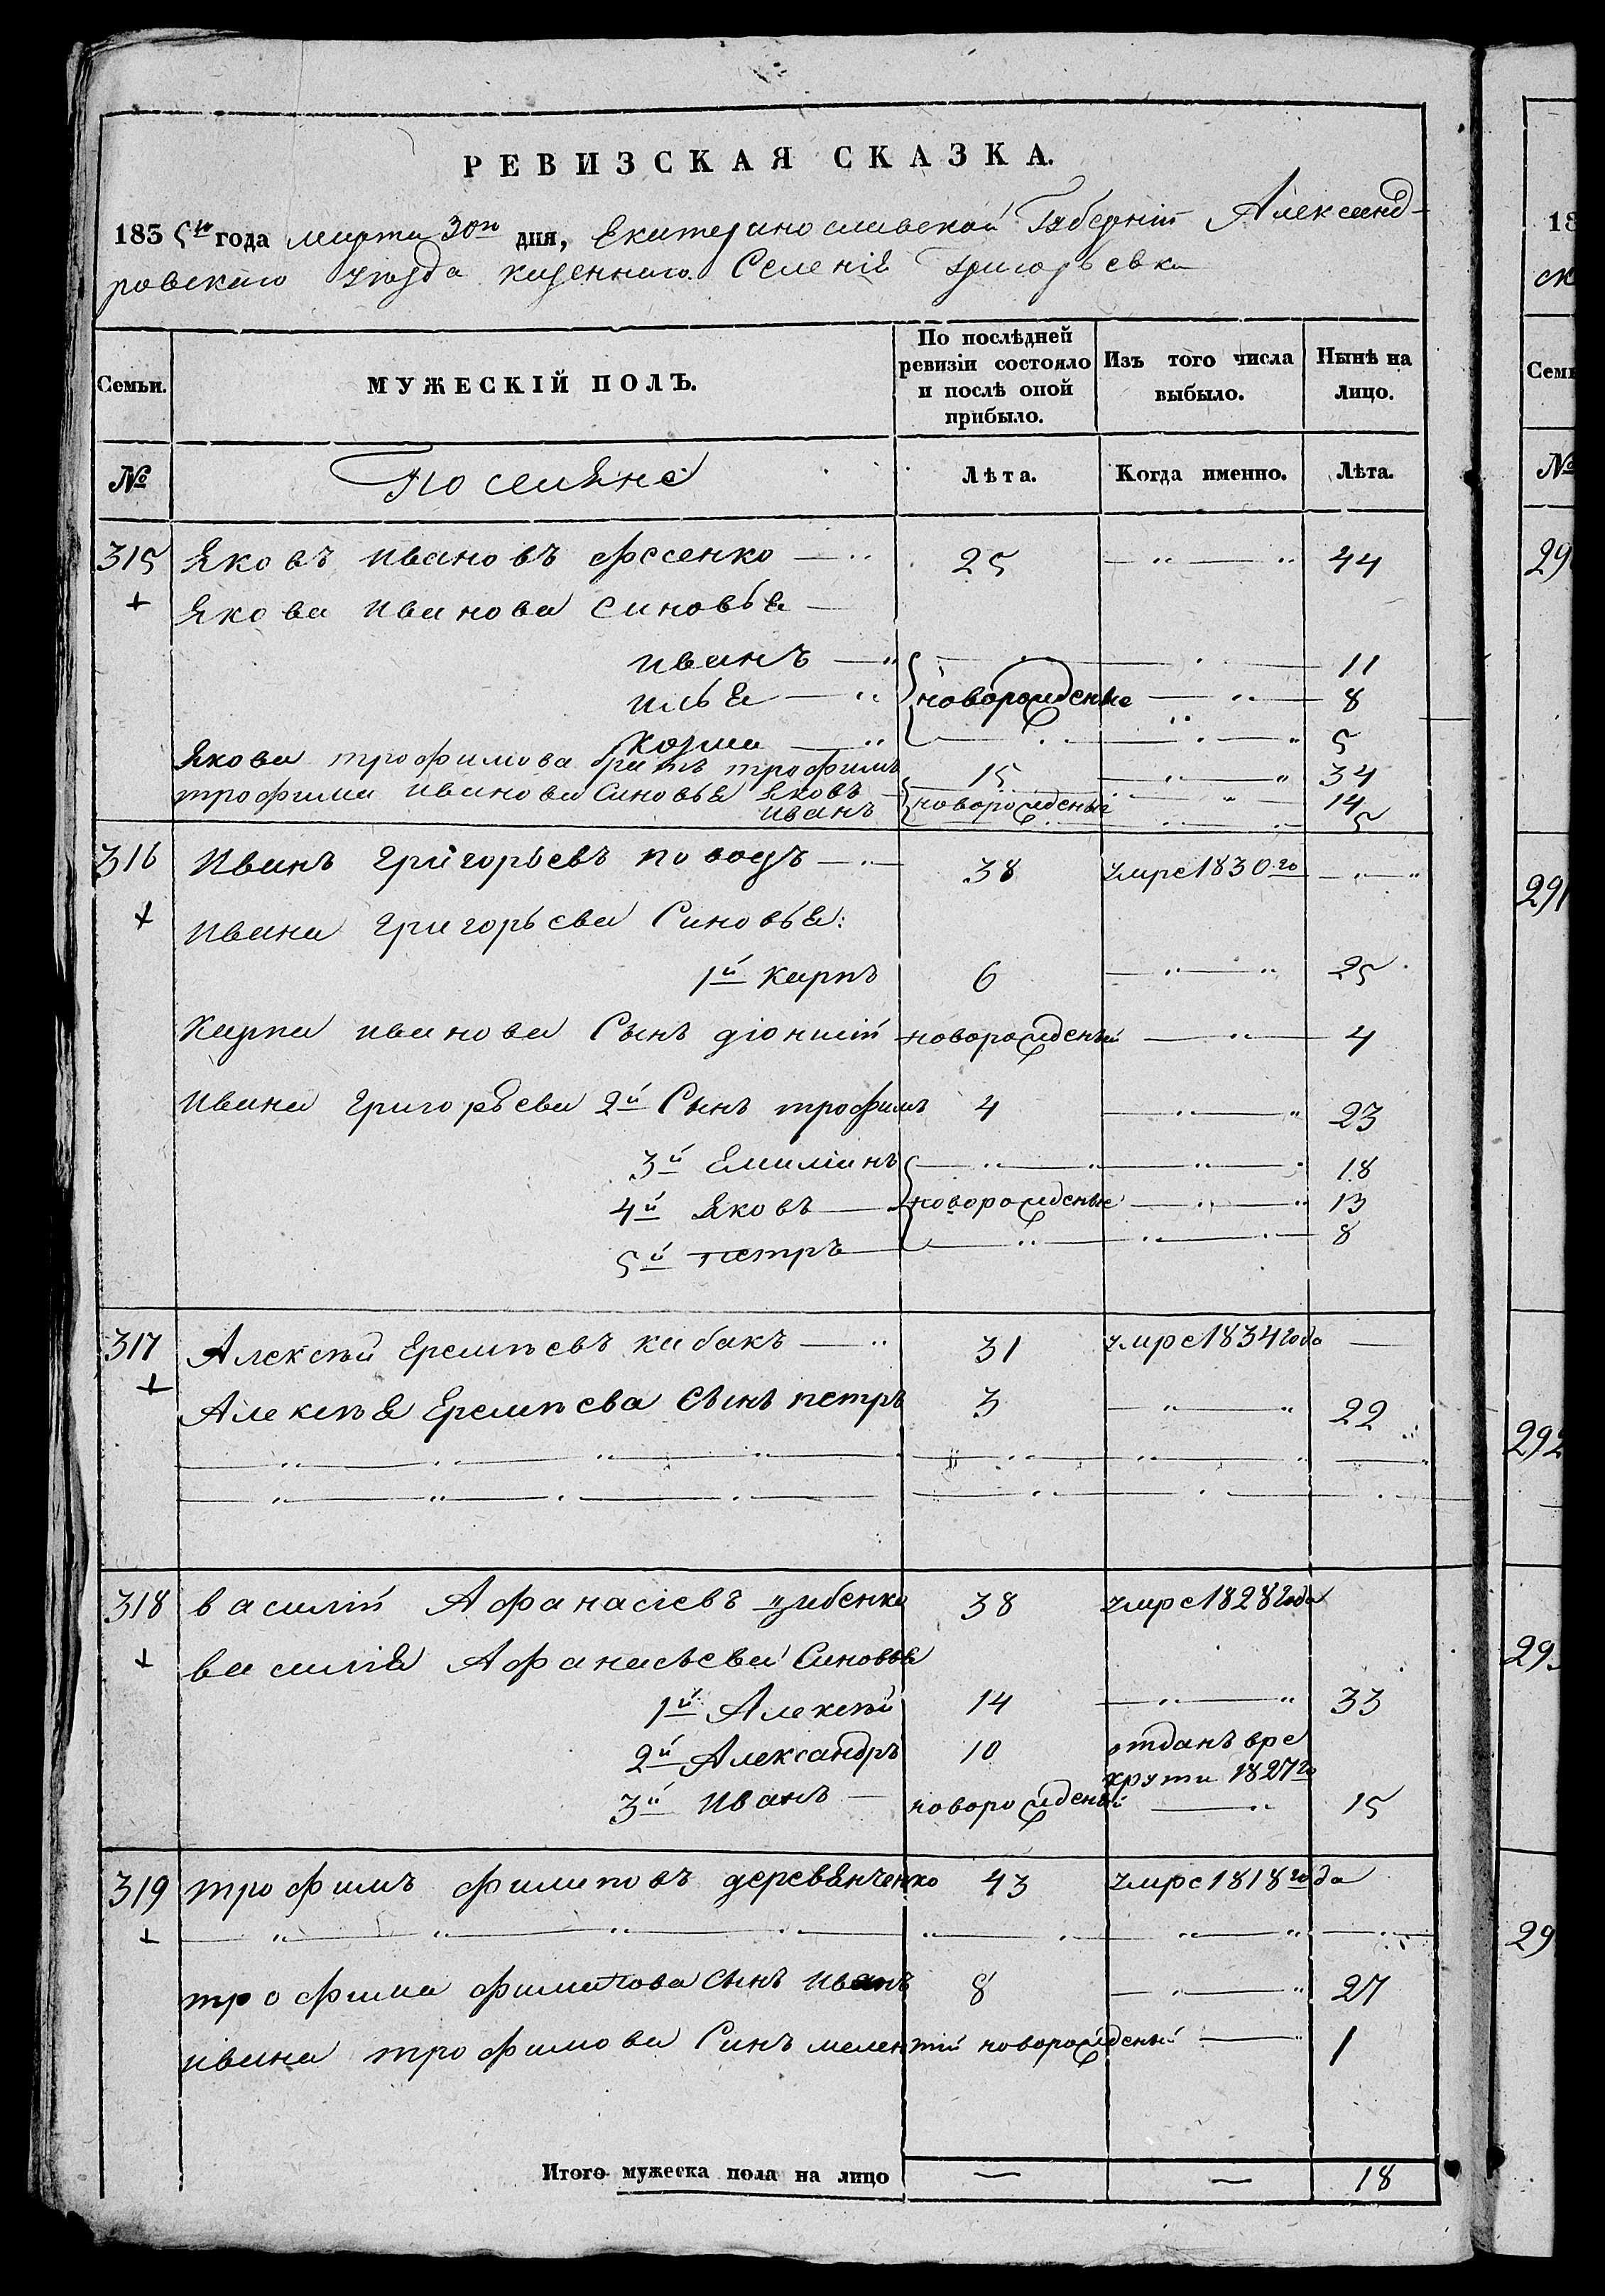 РЕВИЗСКАЯ СКАЗКА.
1835го года марта 30го дня, Екатеринославской Губерніи Александ-
ровскаго уѣзда казеннаго Селенія Григорьевки
Семьи. МУЖЕСКІЙ ПОЛЪ. По послѣдней ревизіи состояло и послѣ оной прибыло. Изъ того числа выбыло. Нынѣ на лицо.
№ Поселяне Лѣта. Когда именно. Лѣта.
315 Яковъ Ивановъ Фесенко 25 44
+ Якова Иванова синовья
иванъ 11
илья новорожденые 8
козма 5
Якова трофимова братъ трофимъ 15 34
трофима иванова Синовья Яковъ новорожденые 14
иванъ 5
316 Иванъ григорьевъ поводъ 38 умре 1830го
+ ивана григорьева Синовья:
1й карпъ 6 25
Карпа иванова Сынъ діонисій новорожденый 4
ивана григорьева 2й Сынъ трофимъ 4 23
3й Емиліанъ 18
4й Яковъ новорожденые 13
5й петръ 8
317 Алексѣй Еремѣевъ кабакъ 31 умре 1834 года
+ Алексѣя Еремѣева Сынъ петръ 3 22
318 василій Афанасіевъ цибенко 38 умре 1828 года
+ василія Афанасьева Синовья
1й Алексѣй 14 33
2й Александръ 10 отданъ вре
круты 1827го
3й иванъ новорожденый 15
319 трофимъ филиповъ деревянченко 43 умре 1818 года
+
трофима филипова Сынъ иванъ 8 27
ивана трофимова Синъ мелентій новорожденый 1
Итого мужеска пола на лицо — — 18
18
ск
Семь
№
29
291
292
29
29